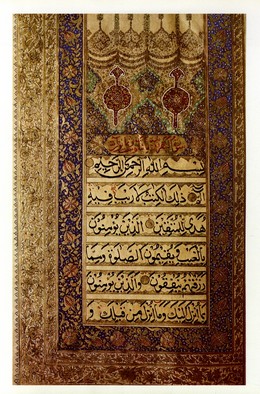 بسم الله الرحمن الرحيم
ذلك الكتب لا ريب فيه
هدى للمتقين الذين يؤمنون
بالغيب ويقيمون الصلوة ومما
رزقنهم ينفقون والذين يؤمنون
بما انزل اليك وما انزل من قبلك و